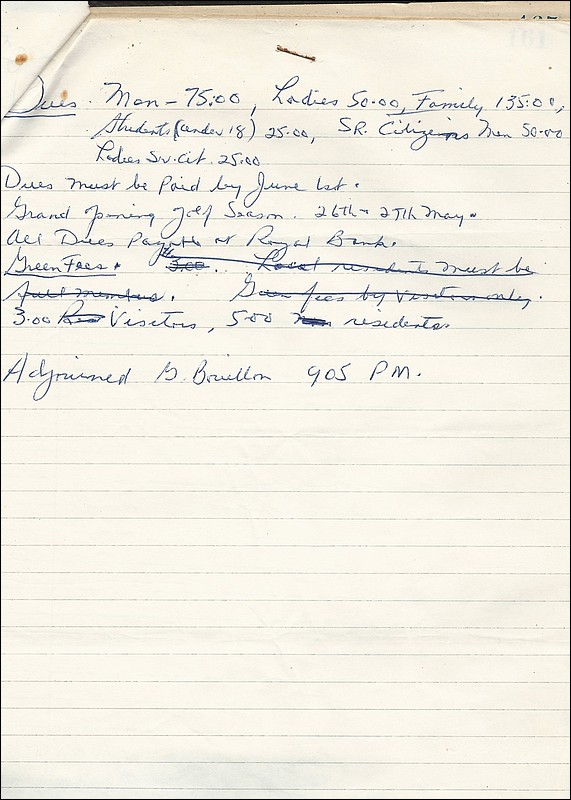 Dues. Men - 75.00, Ladies 50.00, Family 135.00,
Students (under 18) 25.00, SR. Citizens Men 50.00
Ladies Sr. Cit. 25.00
Dues must be paid by June 1st.
Grand opening golf Season. 26th + 27th May.
All Dues Payable at Royal Bank.
Green Fees. 3.00.. Local residents must be
full members. Green fees by visitors only.
3.00 Visitors, 5.00 residents.
Adjourned G. Bouillon 905 PM.